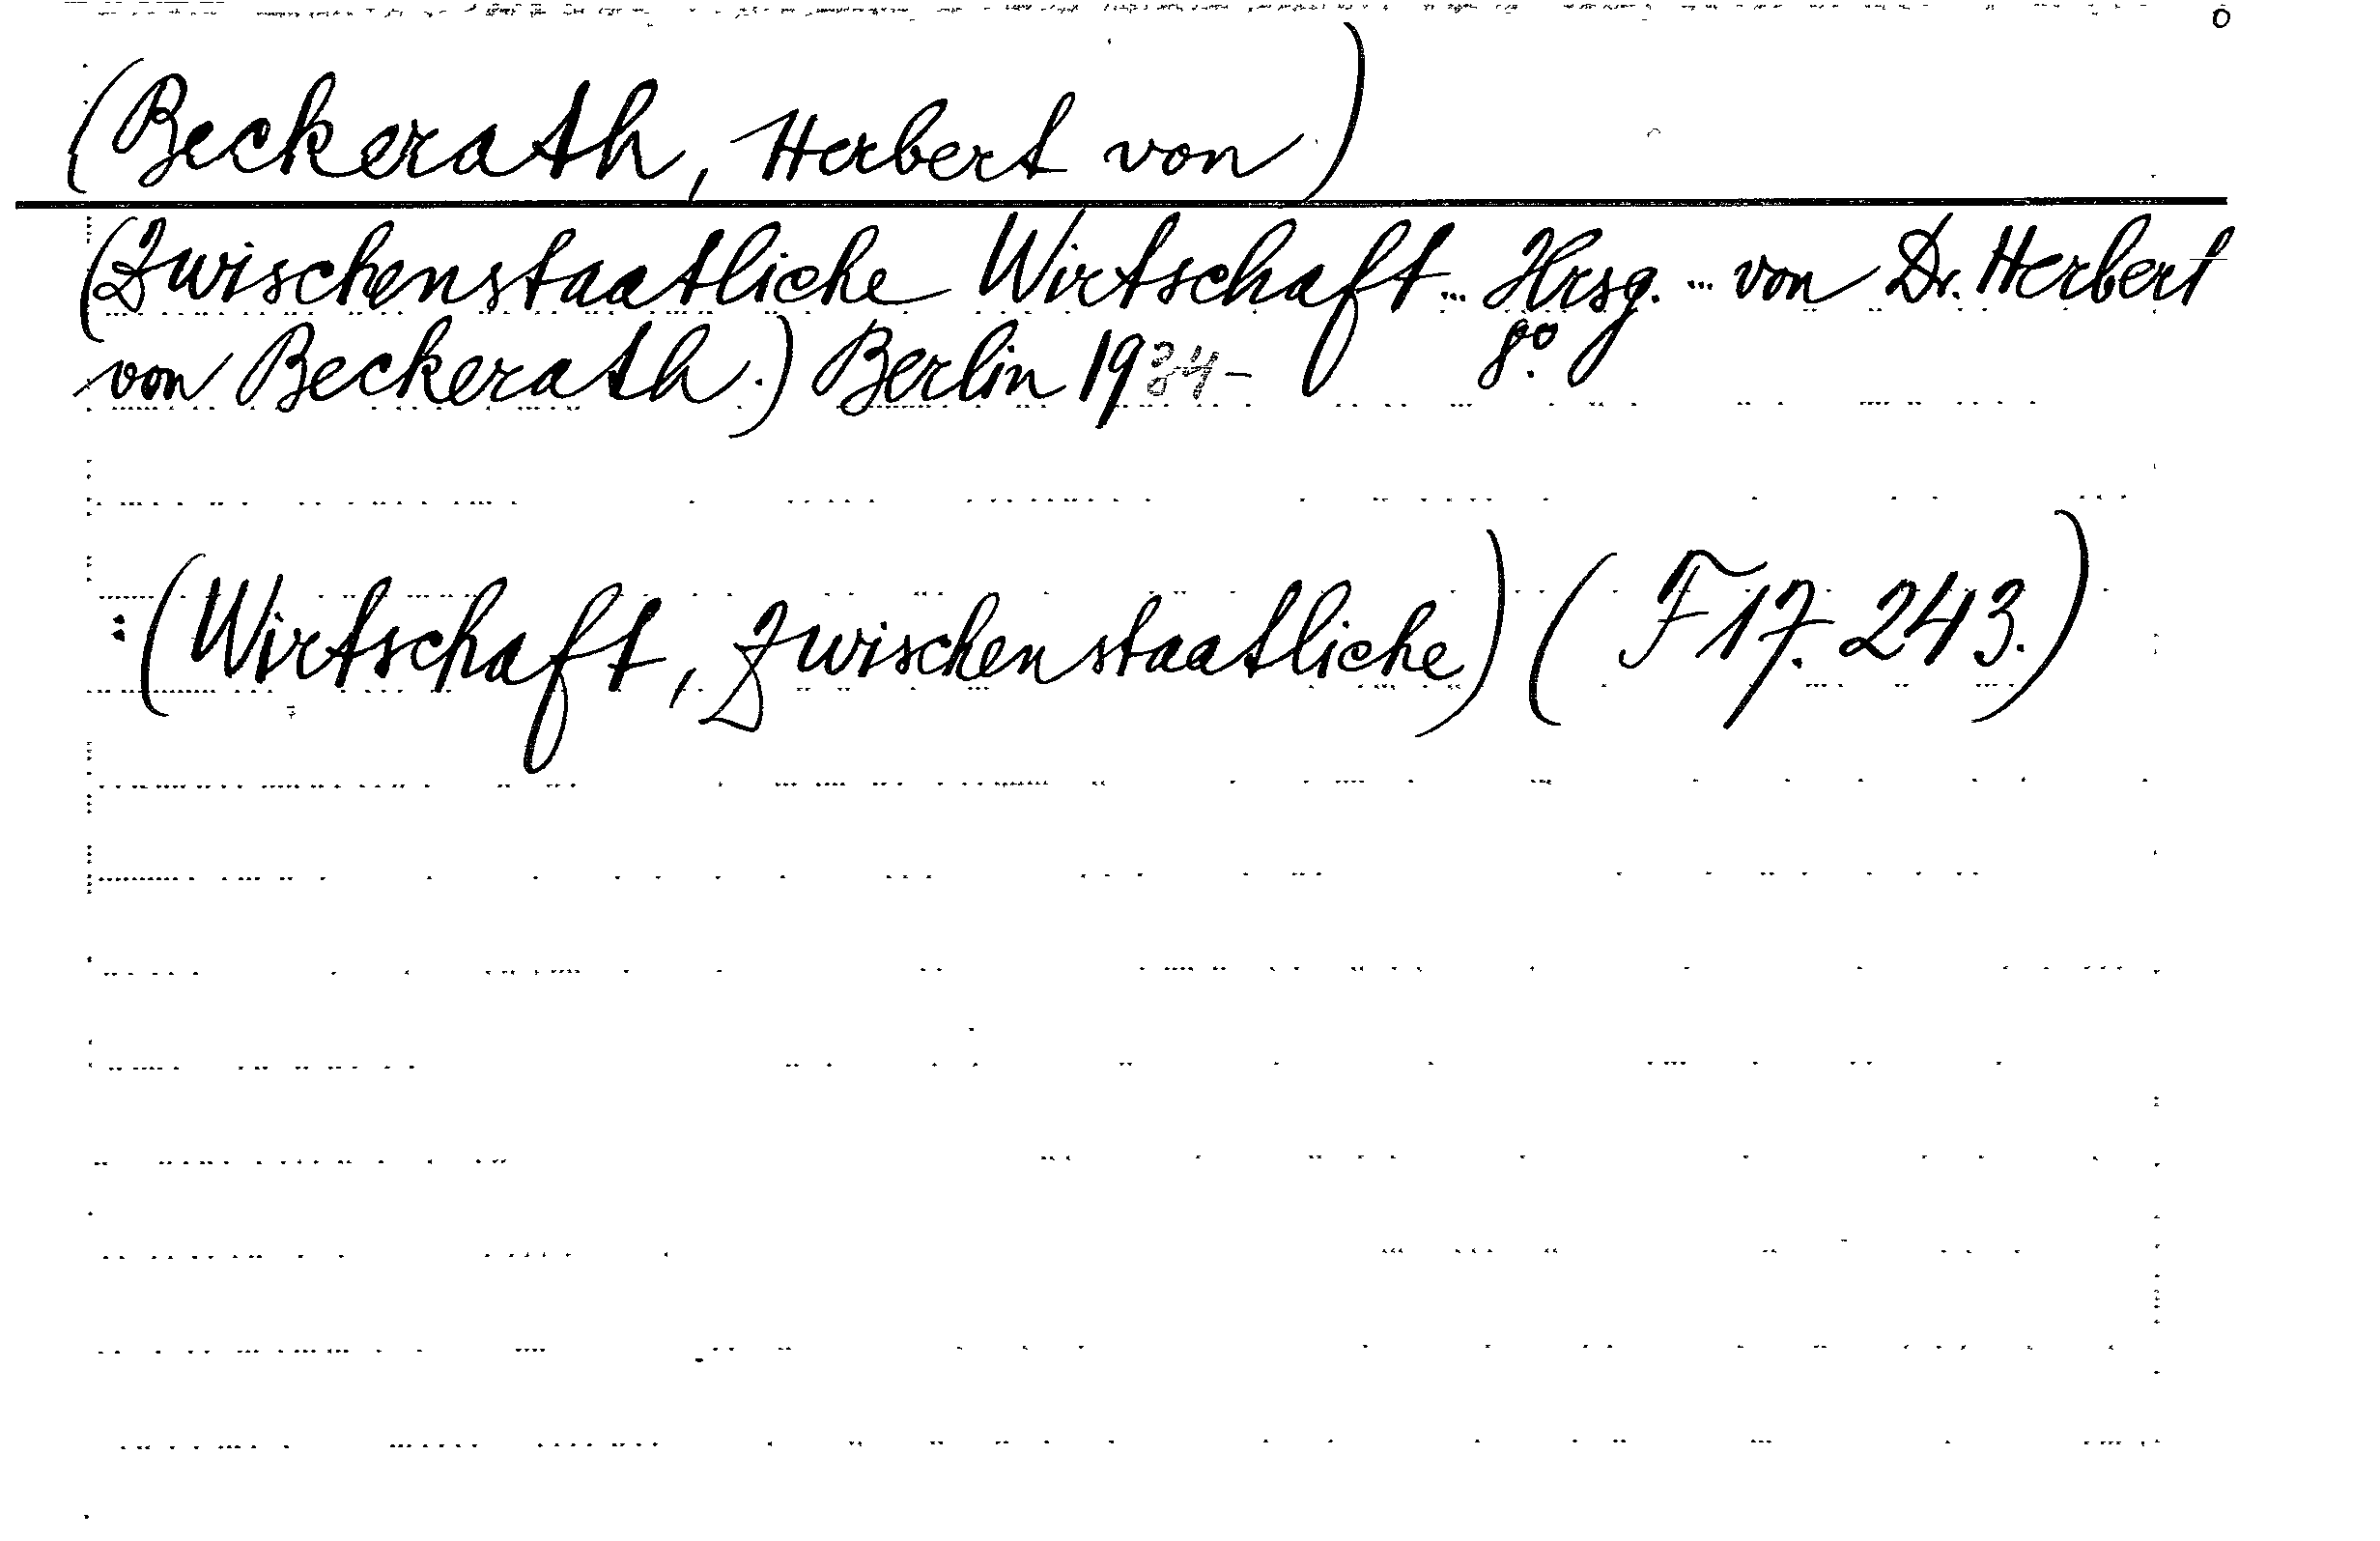 (Beckerath, Herbert von)
(Zwischenstaatliche Wirtschaft... Hrsg. ... von Dr. Herbert
von Beckerath.) Berlin 1934- 8º.
: (Wirtschaft, Zwischenstaatliche) (F 17. 243.)